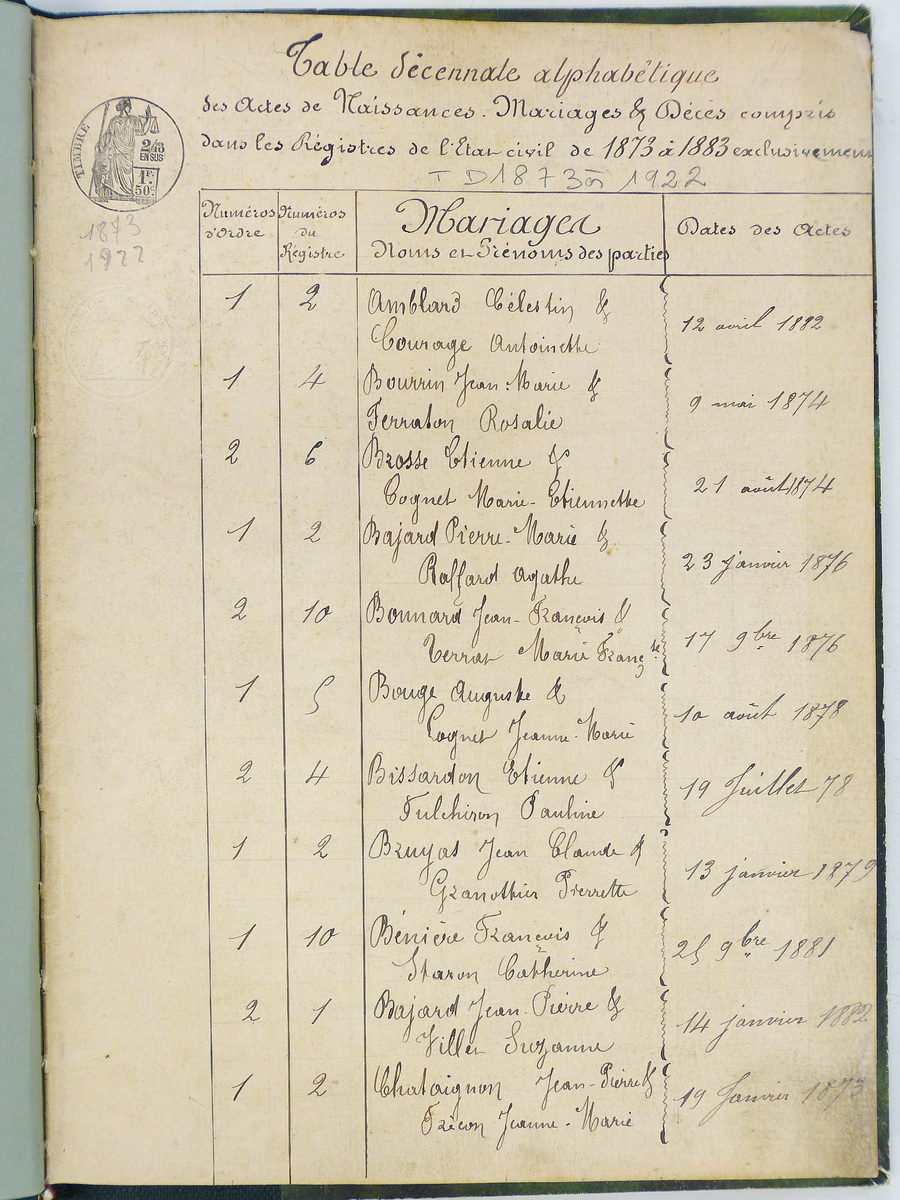 Table décennale alphabétique
des Actes de Naissances. Mariages & Décès compris
dans les Régistres de l'Etat civil de 1873 à 1883 exclusivement
TIMBRE
2/10
EN SUS
1F.
50c.
T D 1873 à 1922
1873
1922
Numéros d'Ordre
Numéros du Régistre
Mariages
Noms et Prénoms des parties
Dates des Actes
1 2 Amblard Célestin &
Courage Antoinette
12 avril 1882
1 4 Bourrin Jean-Marie &
Ferraton Rosalie
9 mai 1874
2 6 Brosse Etienne &
Cognet Marie-Etiennette
21 août 1874
1 2 Bajard Pierre-Marie &
Raffard Agathe
23 janvier 1876
2 10 Bonnard Jean-François &
Terrat Marie Franç.se
17 9bre 1876
1 5 Bouge Auguste &
Cognet Jeanne-Marie
10 août 1878
2 4 Bissardon Etienne &
Fulchiron Pauline
19 Juillet 78
1 2 Bruyas Jean Claude &
Granothier Pierrette
13 janvier 1879
1 10 Bénière François &
Staron Catherine
25 9bre 1881
2 1 Bajard Jean-Pierre &
Viller Suzanne
14 janvier 1882
1 2 Chataignon Jean-Pierre &
Frécon Jeanne-Marie
19 Janvier 1873